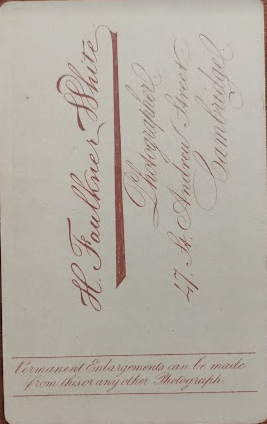 H. Faulkner White
Photographer
47, St. Andrew Street
Cambridge
Permanent Enlargements can be made
from this or any other Photograph.